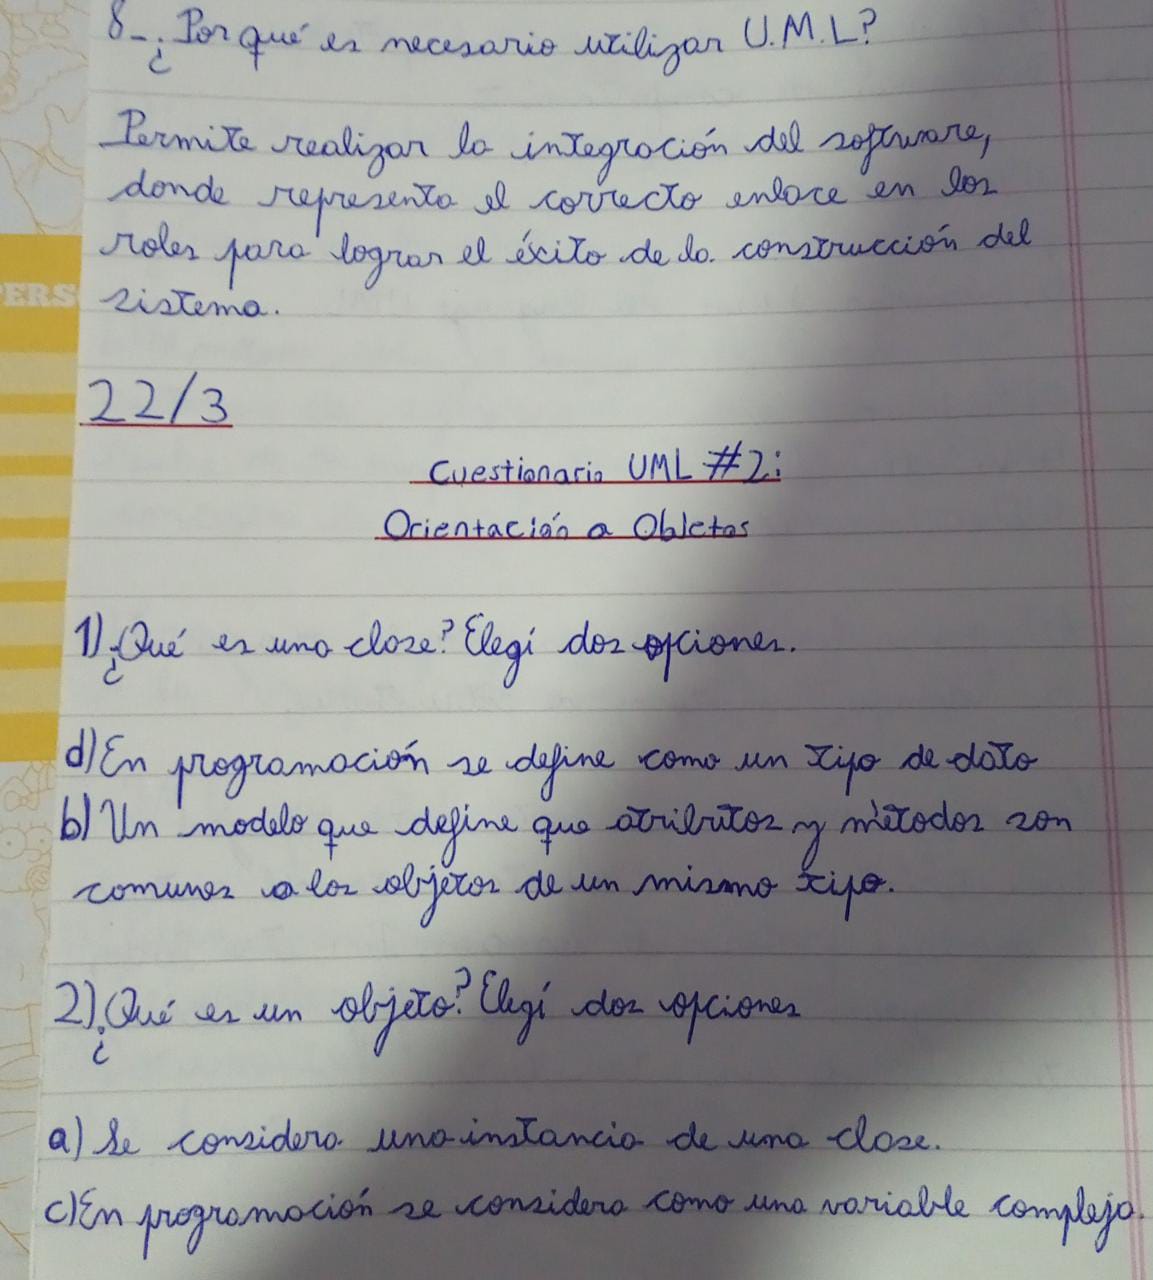 8-¿Por qué es necesario utilizar U.M.L?
Permite realizar la integración del software,
donde representa el correcto enlace en los
roles para lograr el éxito de la construcción del
sistema.
PERS
22/3
Cuestionario UML #2:
Orientación a Objetos
1)¿Qué es una clase? Elegí dos opciones.
d)En programación se define como un tipo de dato
b)Un modelo que define que atributos y métodos son
comunes a los objetos de un mismo tipo.
2)¿Qué es un objeto? Elegí dos opciones
a) Se considera una instancia de una clase.
c)En programación se considera como una variable compleja.